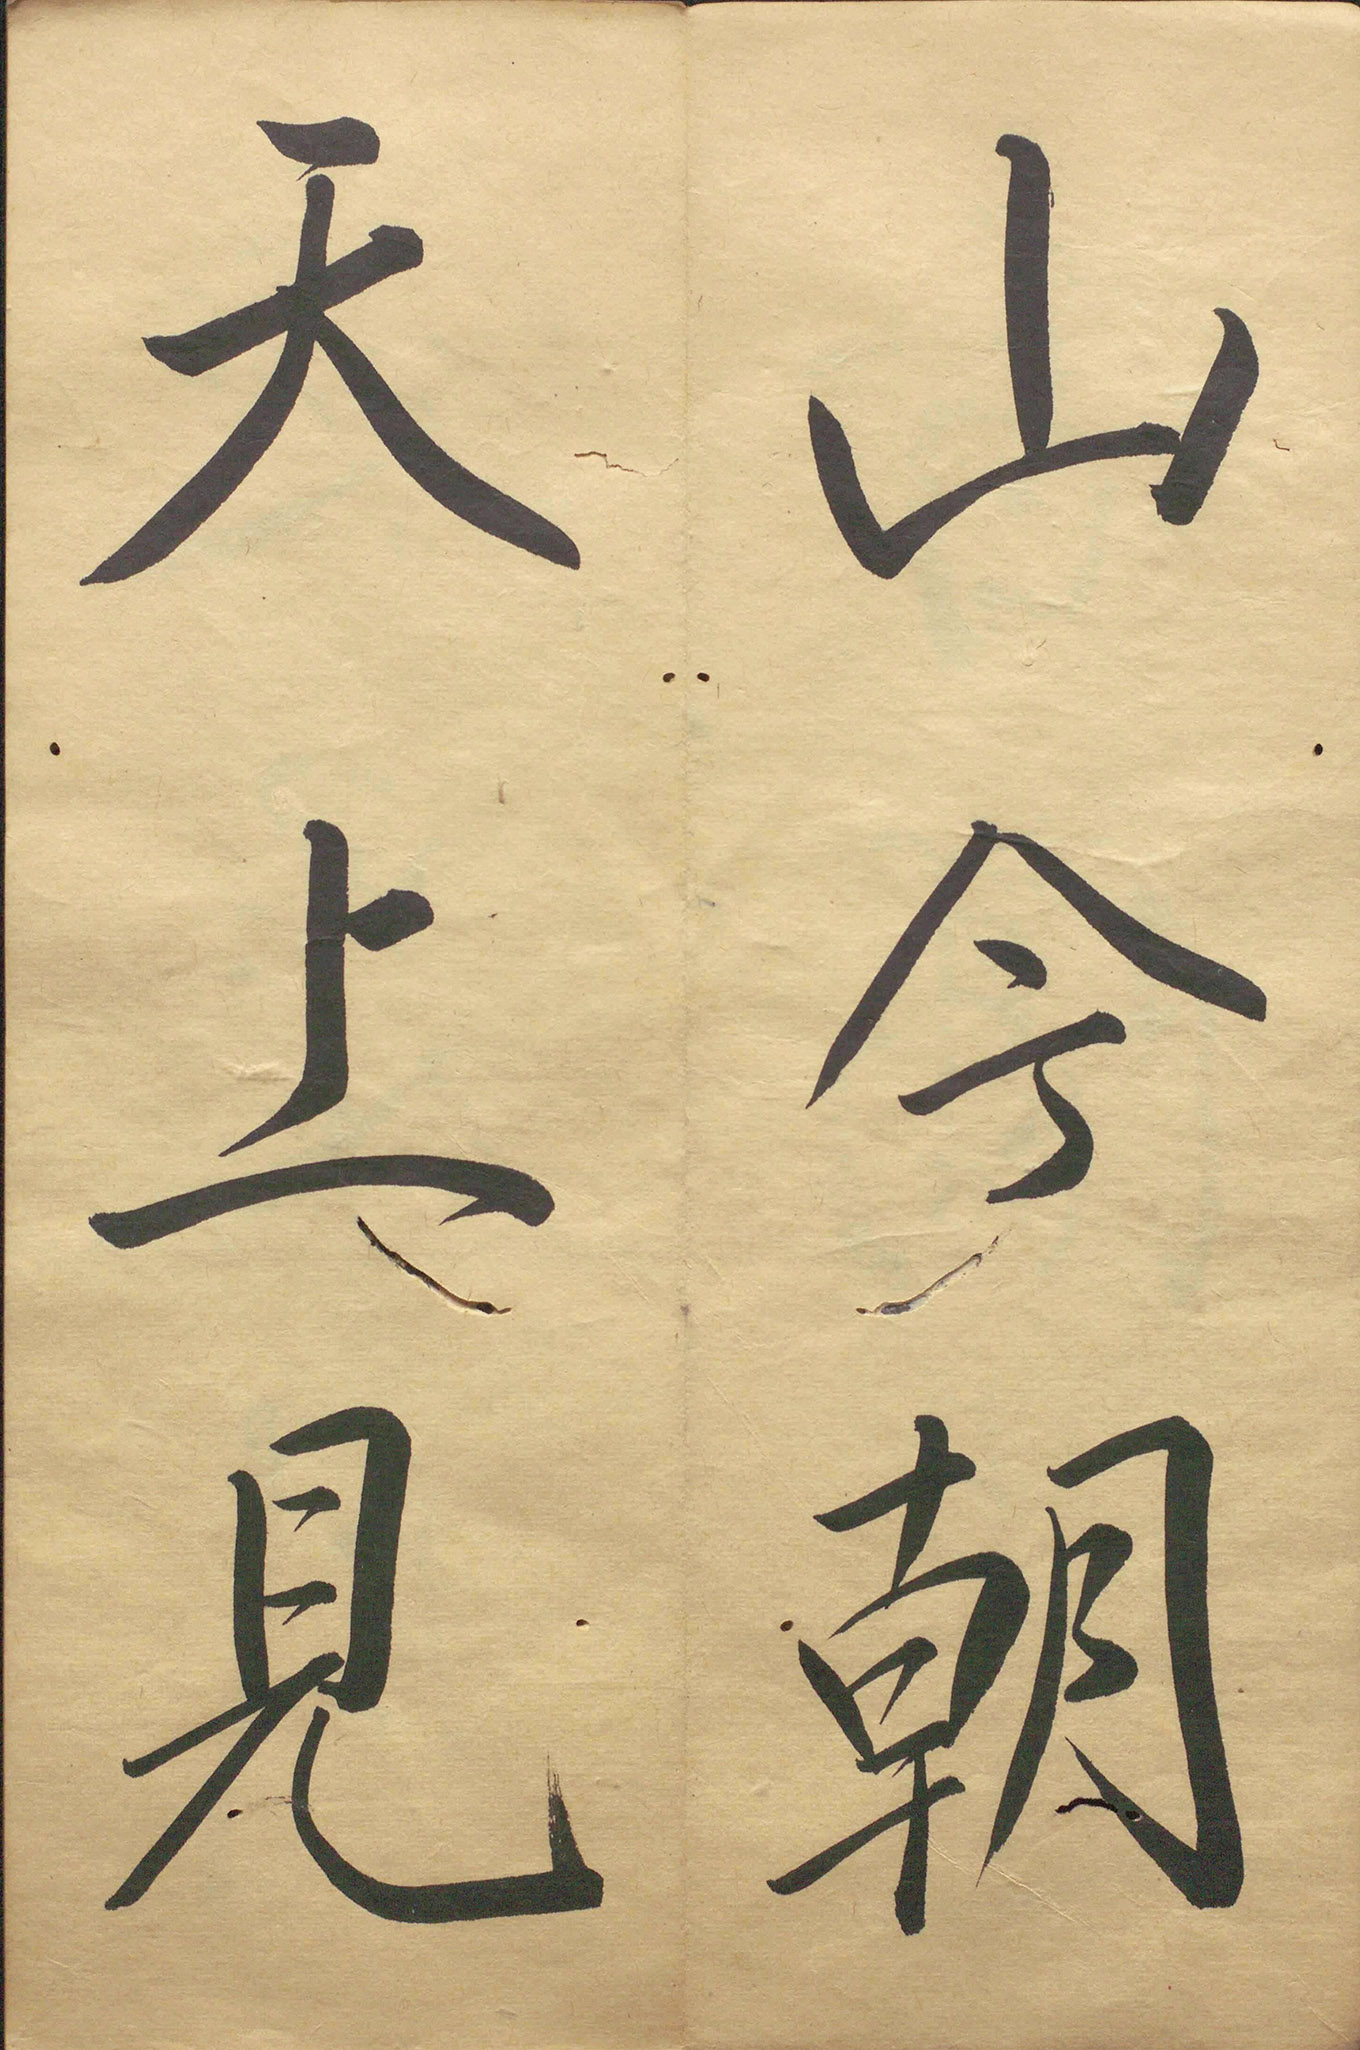 山今朝
天上見